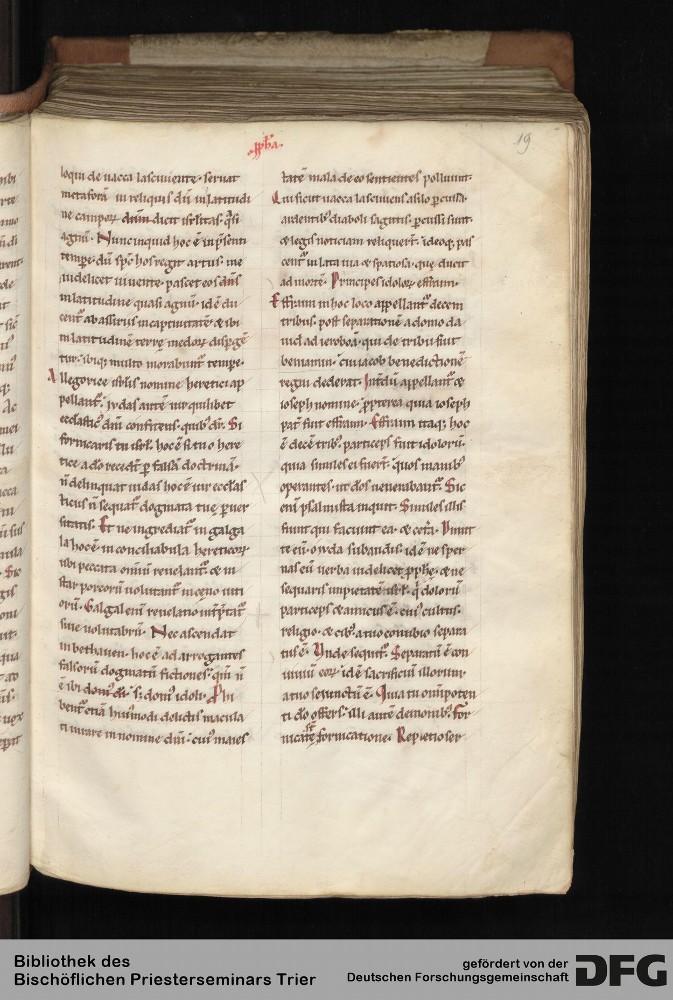 .pph̄a.
19
loqui de uacca lasciuiente. seruat
metaforā in reliquis. dn̄i in latitudi
ne campoꝝ dn̄m dicit isr̄litas. q̄si
agnū. Nunc inquid hoc ē in p̄senti
tempr̄e. dn̄s
uidelicet uiuente. pascet eos dn̄s
in latitudine quasi agnū. idē du
centᷣ ab assiriis in captiuitatē. & ibi
in latitudinē terrę medoꝝ disp̄gē
turᷣ. ibiq; multo morabuntᷣ tempr̄e.
Allegorice isr̄lis nomine heretici ap
pellantᷣ. iudas autē uir quilibet
ecclasticꝰ dn̄m confitens. quibꝰ dr̄. Si
fornicaris tu isr̄l. hoc ē si tu o here
tice a dō recedis p̱ falsā doctrinā.
ñ delinquat iudas hoc ē uir eccl̄as
ticus ñ sequatᷣ dogmata tuę p̱uer
sitatis. Et ne ingrediatᷣ in galga
la hoc ē in conciliabula hereticoꝝ
ubi peccata omniū reuelantᷣ. & in
star porcorū uolutantᷣ in cęno uiti
orū. Galgal enī reuelatio int̄p̄tatᷣ
siue uolutabrū. Nec ascendat
in bethauen. hoc ē ad arrogantes
falsorū dogmatū fictiones. qm̄ ñ
ē ibi domꝰ dī. s; domꝰ idoli. Phi
bentᷣ etiā huiꝰmodi delictis macula
ti iurare in nomine dn̄i. cuiꝰ maies
tatē mala de eo sentientes polluunt.
Qui sicut uacca lasciuiens asilo p̱cussa.
ardentibꝰ diaboli sagittis p̱cussi sunt.
& legis noticiam reliquerᷣt. ideoq; pas
centᷣ in lata uia & spatiosa. quę ducit
ad mortē. Principes idoloꝝ effraim.
Effraim in hoc loco appellantᷣ decem
tribus. post separationē a domo da
uid ad ieroboā. qui de tribu fuit
beniamin. cui iacob benedictionē
regni dederat. Int̄dū appellantᷣ &
ioseph nomine. p̱pterea quia ioseph
patᷣ fuit effraim. Effraim itaq; hoc
ē decē tribꝰ. particeps fuit idolorū.
quia similes eis fuerᷣt. quos manibꝰ
operantes. ut dōs uenerabantᷣ. Sic
enī psalmista inquit. Similes illis
fiunt qui faciunt ea. & cet̄a. Dimit
te eū. o iuda subaudis. idē ne sper
nas eū uerba uidelicet p̱phę. & ne
sequaris impietatē isr̄l. q̄ dolorū
particeps & amicus ē. cuiꝰ cultus.
religio. & cibꝰ. a tuo conuiuio separa
tus ē. Unde sequitᷣ. Separatū ē con
uiuiū eoꝝ. idē sacrificiū illorum
a tuo seiunctū ē. Quia tu omīpoten
ti dō offers. illi autē demonibꝰ. For
nicati sr̄ fornicatione. Repetio ser
Bibliothek des
Bischöflichen Priesterseminars Trier
gefördert von der
Deutschen Forschungsgemeinschaft
DFG